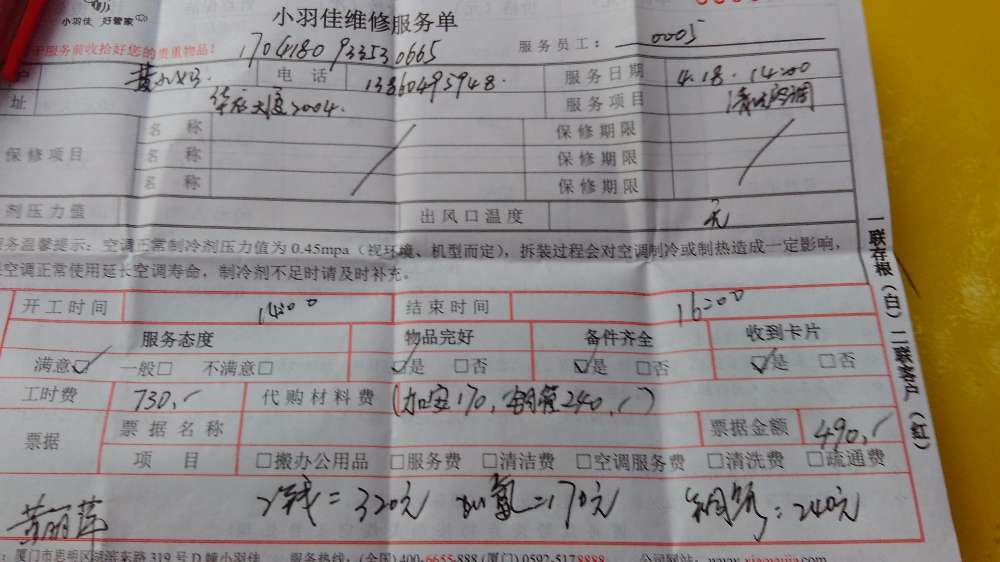 小羽佳 好管家
小羽佳维修服务单
服务前收拾好您的贵重物品!
1704180933530665
服务员工: 0005
黄小姐 电话 13860495948. 服务日期 4.18. 14:00
址 2004. 服务项目 清洗空调
保修项目 名称 保修期限
名称 保修期限
名称 保修期限
剂压力值 出风口温度 无
务温馨提示: 空调正常制冷剂压力值为 0.45mpa(视环境、机型而定), 拆装过程会对空调制冷或制热造成一定影响,
空调正常使用延长空调寿命, 制冷剂不足时请及时补充。
开工时间 14:00 结束时间 16:00
服务态度 物品完好 备件齐全 收到卡片
满意☑ 一般☐ 不满意☐ ☑是 ☐否 ☑是 ☐否 ☑是 ☐否
工时费 730.- 代购材料费 (加氟170, 铜管240.-)
票据 票据名称 票据金额 490.-
项目 ☐搬办公用品 ☐服务费 ☐清洁费 ☐空调服务费 ☐清洗费 ☐疏通费
=320元 加氟=170元 240元
黄丽萍
厦门市思明区湖滨东路 319 号 D 幢小羽佳 服务热线: (全国)400-6655-888 (厦门)0592-5178888 公司网站:
一联存根(白)二联客户(红)